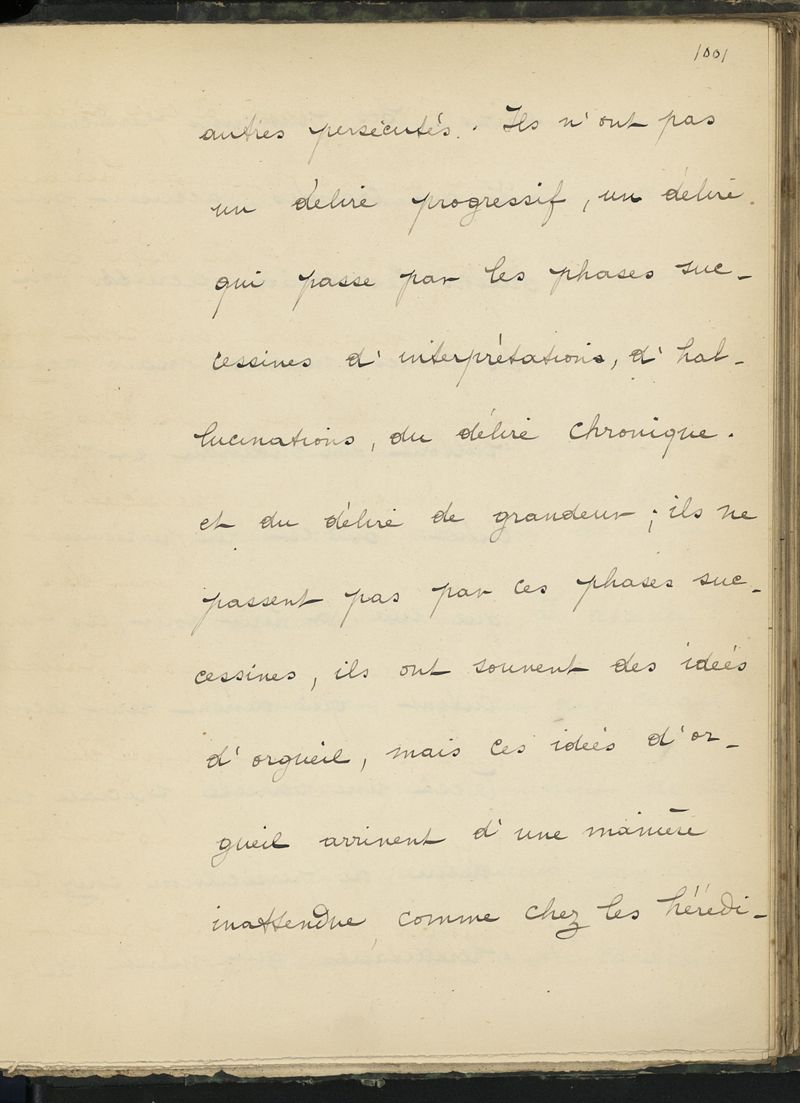 1001
autres persécutés. Ils n'ont pas
un délire progressif, un délire
qui passe par les phases suc-
cessives d'interprétations, d'hal-
lucinations, du délire chronique.
et du délire de grandeur ; ils ne
passent pas par ces phases suc-
cessives, ils ont souvent des idées
d'orgueil, mais ces idées d'or-
gueil arrivent d'une manière
inattendue, comme chez les hérédi-